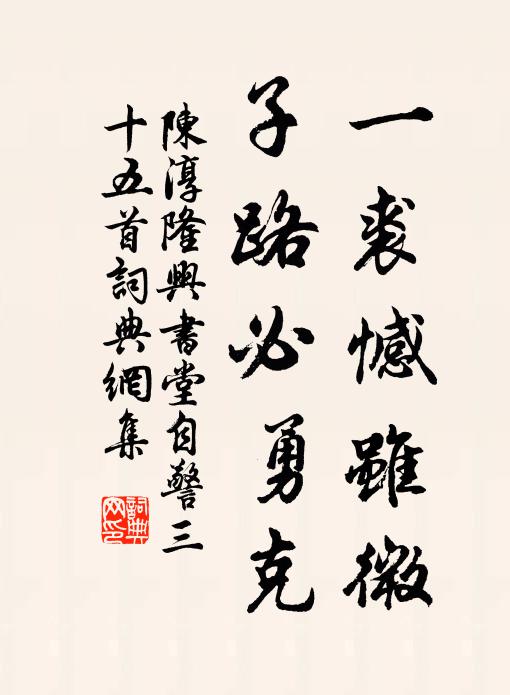 一裘憾雖微
子路必勇克
陳淳隆興書堂自警三
十五首詞典網集
詞典
网印